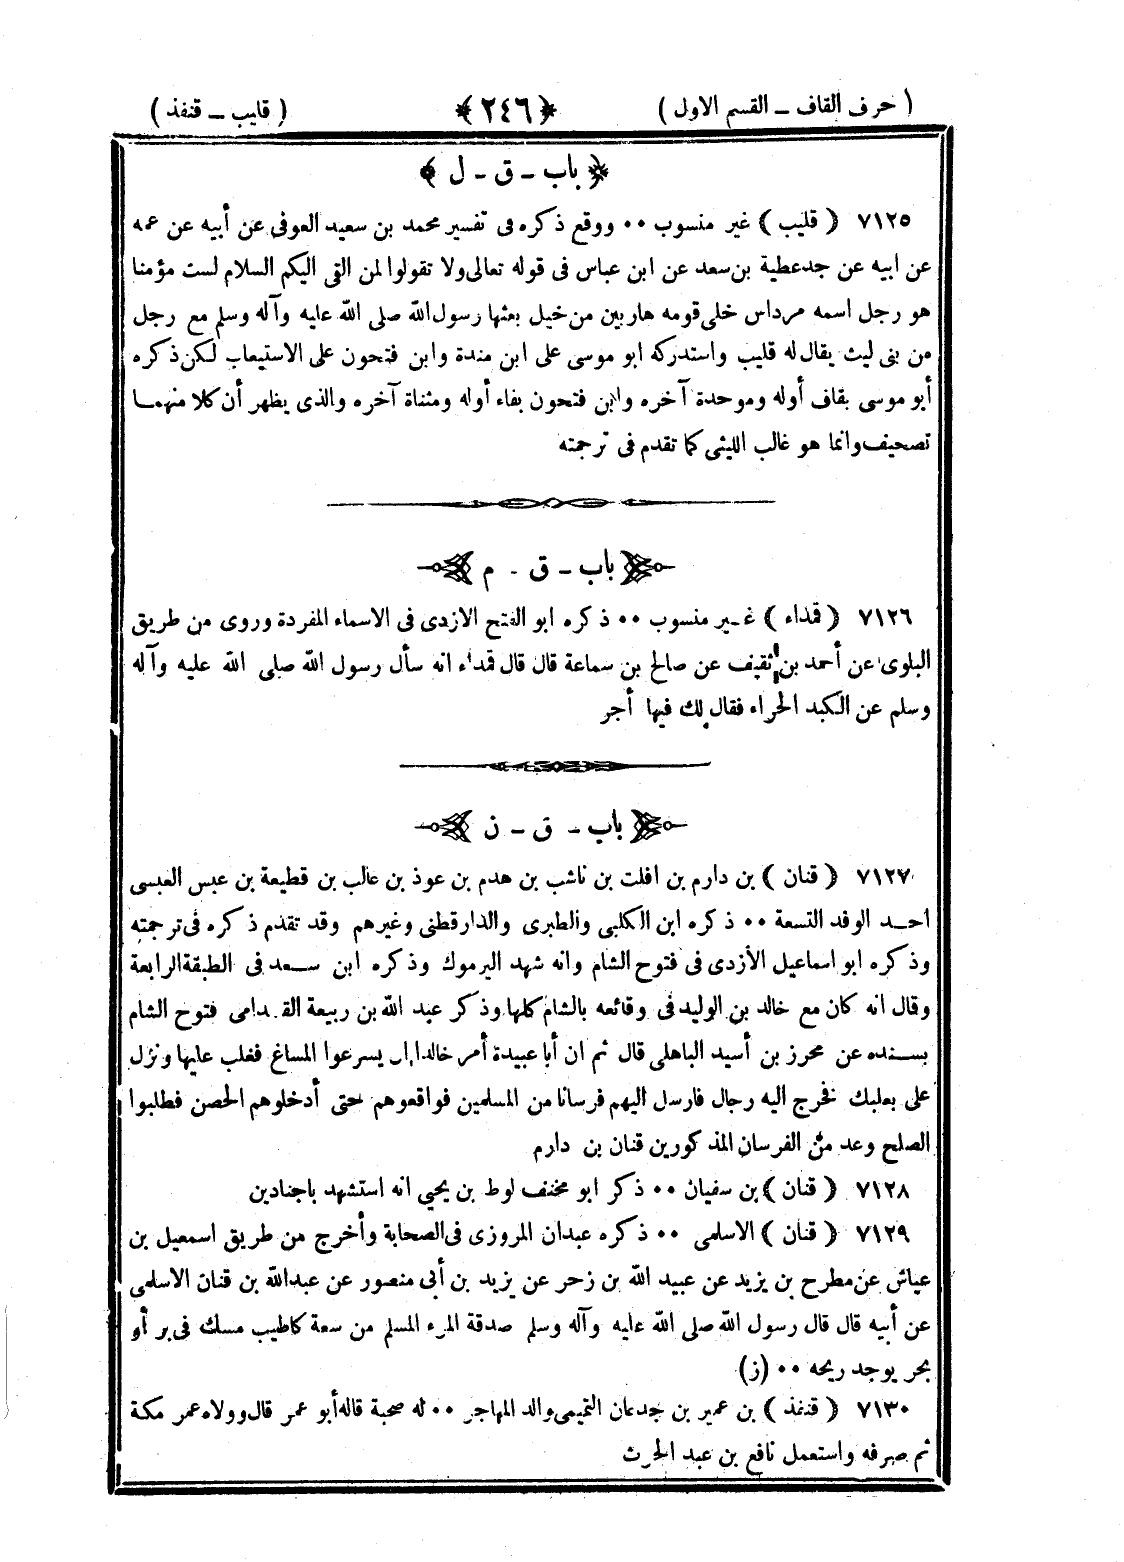 ( حرف القاف ــ القسم الاول ) ﴿ ٢٤٦ ﴾ ( قليب ــ قنفذ )
﴿ باب ـ ق ـ ل ﴾
٧١٢٥ ( قليب ) غير منسوب ٠٠ ووقع ذكره فى تفسير محمد بن سعيد العوفى عن أبيه عن عمه
عن ابيه عن جد عطية بن سعد عن ابن عباس فى قوله تعالى ولا تقولوا لمن القى اليكم السلام لست مؤمنا
هو رجل اسمه مرداس خلى قومه هاربين من خيل بعثها رسول الله صلى الله عليه وآله وسلم مع رجل
من بنى ليث يقال له قليب واستدركه ابو موسى على ابن مندة وابن فتحون على الاستيعاب لكن ذكره
أبو موسى بقاف أوله وموحدة آخره وابن فتحون بفاء أوله ومثناة آخره والذى يظهر أن كلا منهما
تصحيف وانما هو غالب الليثى كما تقدم فى ترجمته
باب ـ ق ـ م
٧١٢٦ ( قمداء ) غير منسوب ٠٠ ذكره ابو الفتح الازدى فى الاسماء المفردة وروى من طريق
البلوى عن أحمد بن ثقيف عن صالح بن سماعة قال قال قمداء انه سأل رسول الله صلى الله عليه وآله
وسلم عن الكبد الحراء فقال لك فيها أجر
باب ـ ق ـ ن
٧١٢٧ ( قنان ) بن دارم بن افلت بن ناشب بن هدم بن عوذ بن غالب بن قطيعة بن عبس العبسى
احد الوفد التسعة ٠٠ ذكره ابن الكلبى والطبرى والدارقطنى وغيرهم وقد تقدم ذكره فى ترجمته
وذكره ابو اسماعيل الأزدى فى فتوح الشام وانه شهد اليرموك وذكره ابن سعد فى الطبقة الرابعة
وقال انه كان مع خالد بن الوليد فى وقائعه بالشام كلها وذكر عبد الله بن ربيعة القدامى فتوح الشام
بسنده عن محرز بن أسيد الباهلى قال ثم ان أبا عبيدة أمر خالدا ان يسرعوا المساغ فغلب عليها ونزل
على بعلبك فخرج اليه رجال فارسل اليهم فرسانا من المسلمين فواقعوهم حتى أدخلوهم الحصن فطلبوا
الصلح وعد من الفرسان المذكورين قنان بن دارم
٧١٢٨ ( قنان ) بن سفيان ٠٠ ذكر ابو مخنف لوط بن يحيى انه استشهد باجنادين
٧١٢٩ ( قنان ) الاسلمى ٠٠ ذكره عبدان المروزى فى الصحابة وأخرج من طريق اسمعيل بن
عياش عن مطرح بن يزيد عن عبيد الله بن زحر عن يزيد بن أبى منصور عن عبدالله بن قنان الاسلمى
عن أبيه قال قال رسول الله صلى الله عليه وآله وسلم صدقة المرء المسلم من سعة كاطيب مسك فى بر أو
بحر يوجد ريحه ٠٠ (ز)
٧١٣٠ ( قنفذ ) بن عمير بن جدعان التميمى والد المهاجر ٠٠ له صحبة قاله أبو عمر قال وولاه عمر مكة
ثم صرفه واستعمل نافع بن عبد الحرث